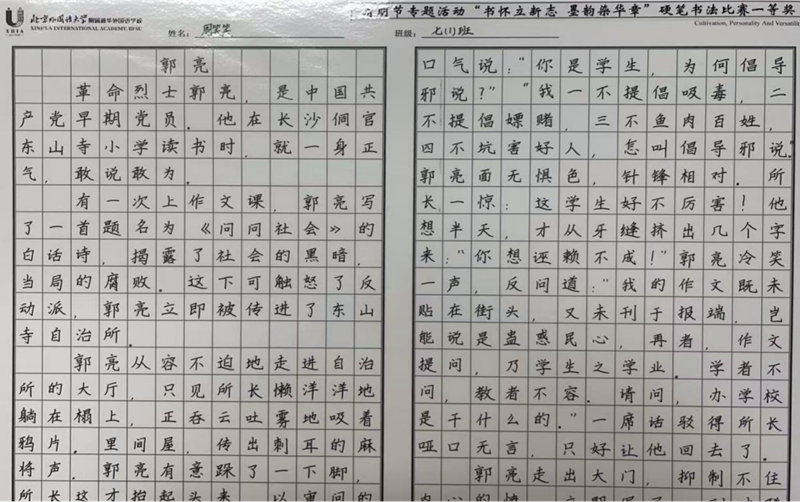 北京外国语大学附属新华外国语学校
XINHUA INTERNATIONAL ACADEMY, BFSU
XHIA
清明节专题活动“书怀立新志 墨韵染华章”硬笔书法比赛一等奖
Cultivation, Personality And Versatili
姓名：
班级：七(1)班
郭亮
革命烈士郭亮，是中国共
产党早期党员。他在长沙侗官
东山寺小学读书时，就一身正
气，敢说敢为。
有一次上作文课，郭亮写
了一首题名为《问问社会》的
白话诗，揭露了社会的黑暗，
当局的腐败。这下可触怒了反
动派，郭亮立即被传进了东山
寺自治所。
郭亮从容不迫地走进自治
所的大厅，只见所长懒洋洋地
躺在榻上，正吞云吐雾地吸着
鸦片。里间屋，传出刺耳的麻
将声。郭亮有意跺了一下脚，
所长这才抬起头来，以审问的
口气说：“你是学生，为何倡导
邪说？”“我一不提倡吸毒，二
不提倡嫖赌，三不鱼肉百姓，
四不坑害好人，怎叫倡导邪说。
郭亮面无惧色，针锋相对。所
长一惊：这学生好不厉害！他
想半天，才从牙缝挤出几个字
来：“你想诬赖不成！”郭亮冷笑
一声，反问道：“我的作文既未
贴在街头，又未刊于报端，岂
能说是蛊惑民心，再者，作文
提问，乃学生之学业。学者不
问，教者不容。请问，办学校
是干什么的。”一席话驳得所长
哑口无言，只好让他回去了。
郭亮走出大门，抑制不住